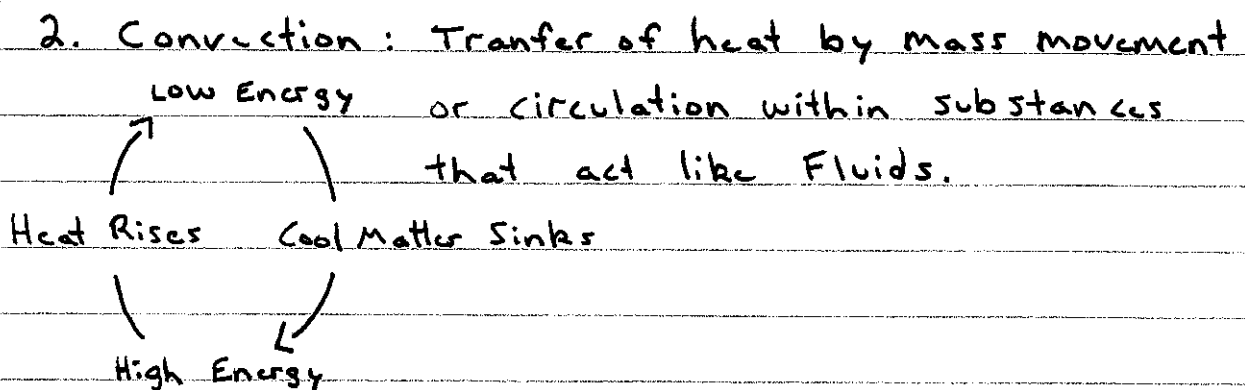 2. Convection: Tranfer of heat by mass movement
Low Energy or circulation within substances
that act like Fluids.
Heat Rises Cool Matter Sinks
High Energy